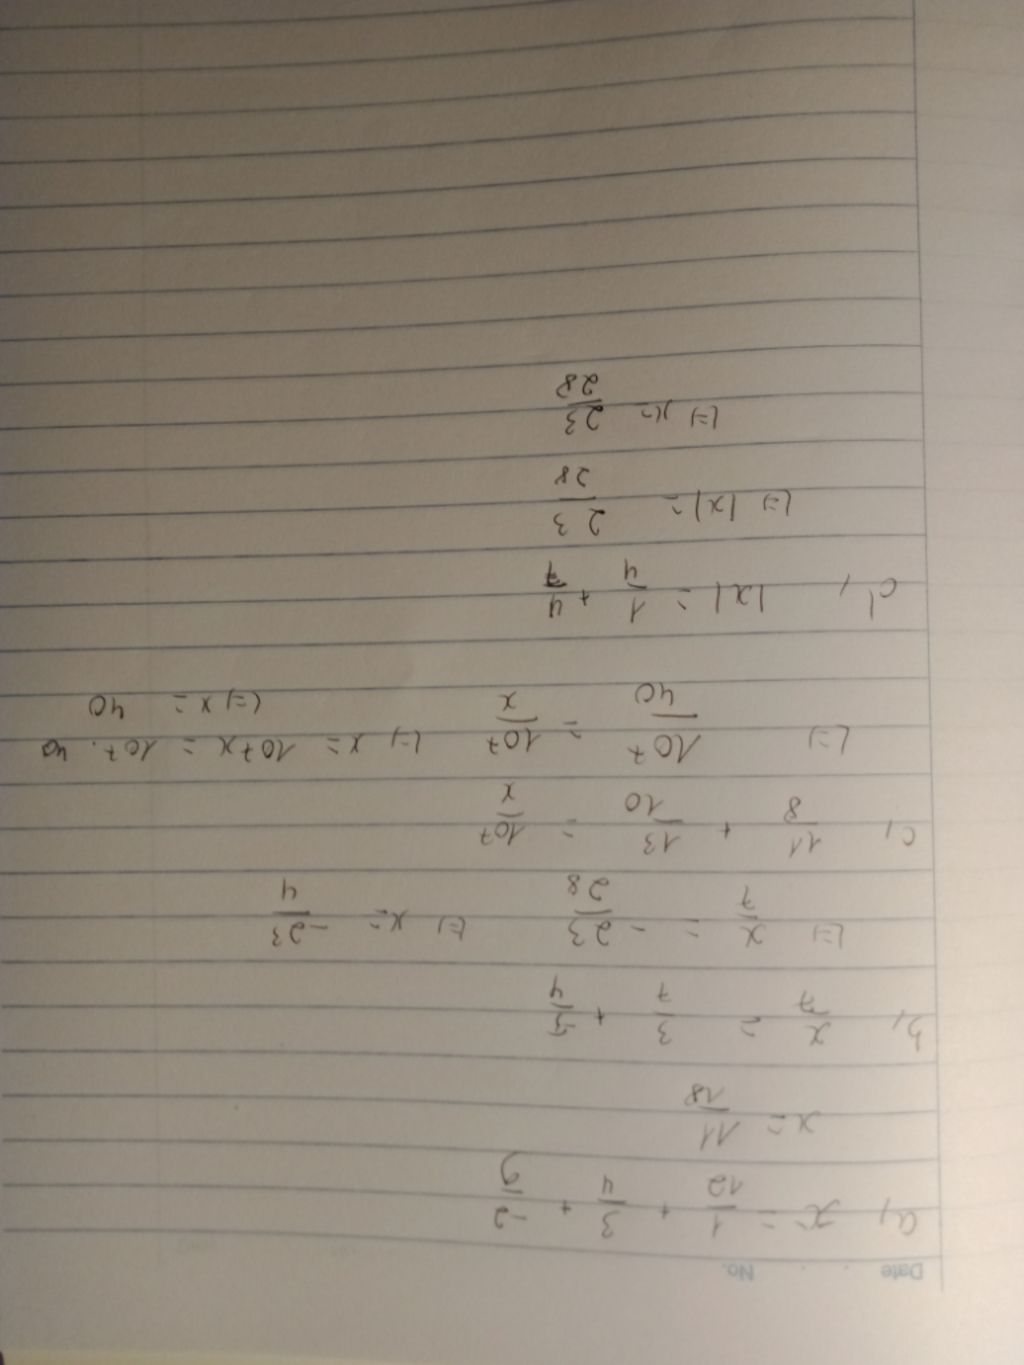 Date . . No.
a, x = 1/12 + 3/4 + -2/9
x = 11/18
b, x/7 = 3/7 + 5/4
(=) x/7 = - 23/28 (=) x = -23/4
c, 11/8 + 13/10 = 107/x
(=) 107/40 = 107/x (=) x = 107x = 107.40
(=) x = 40
d, |x| = 1/4 + 4/7
(=) |x| = 23/28
(=) x = 23/28